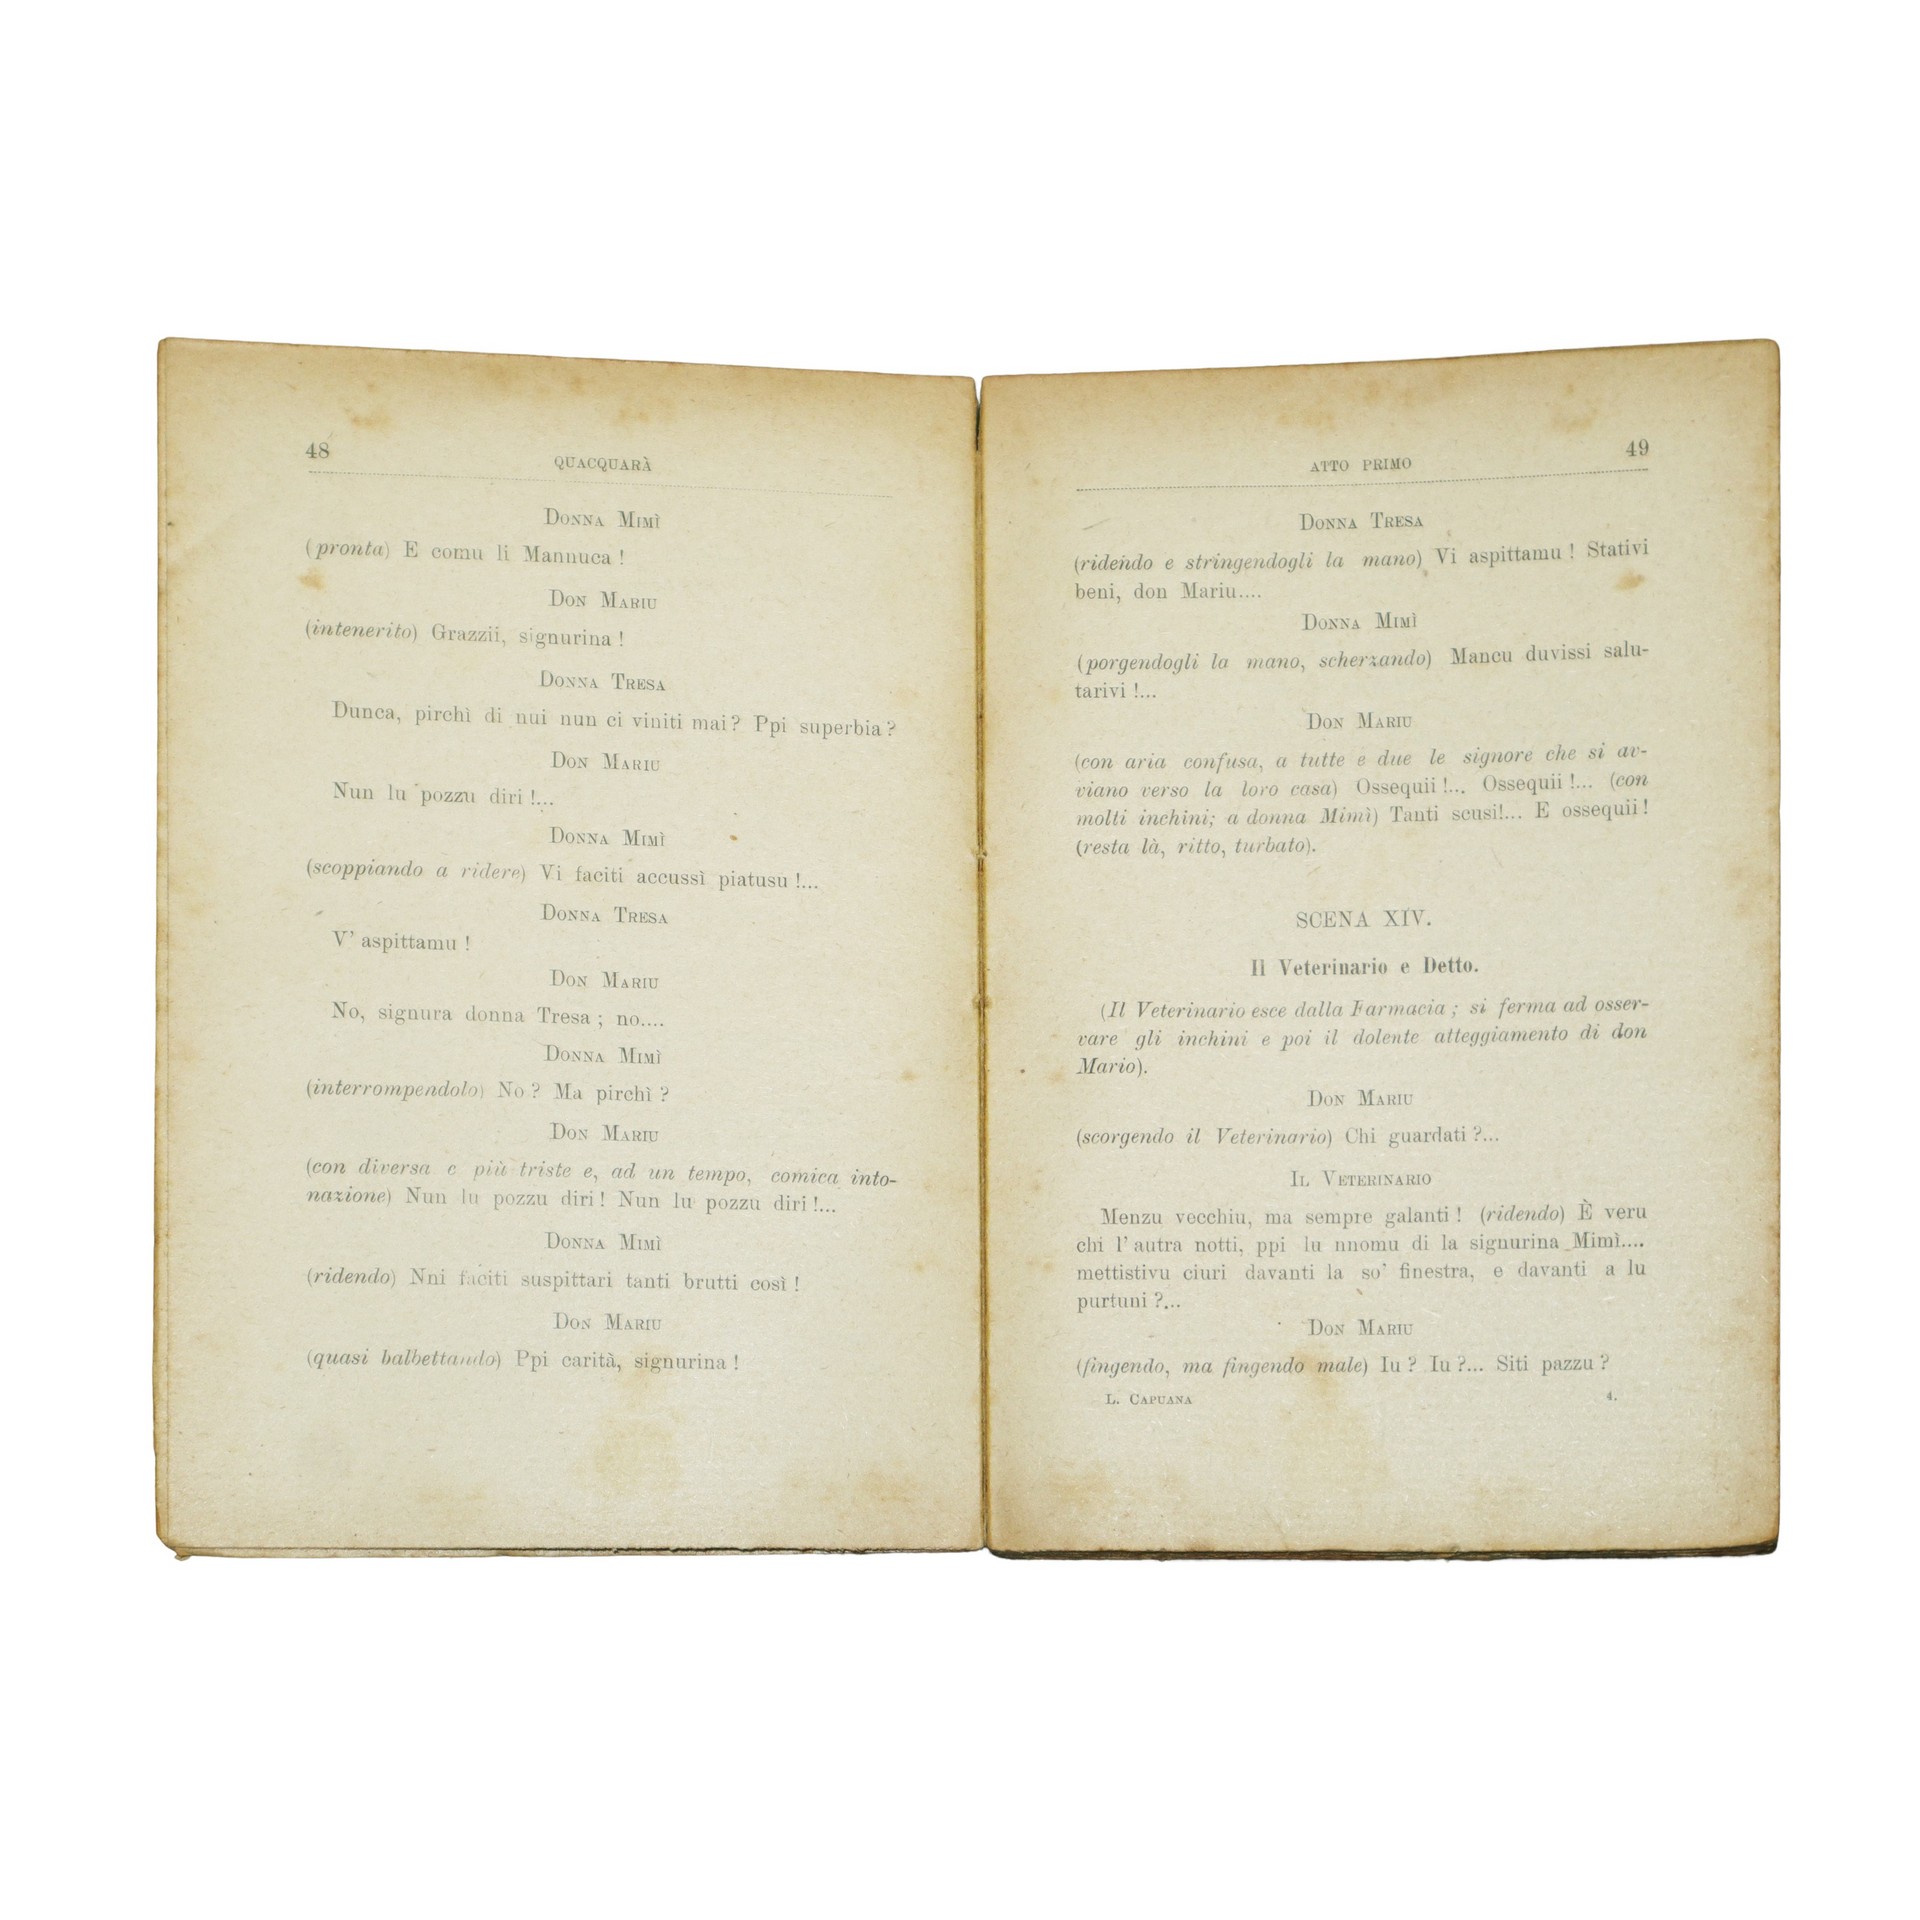 48
QUACQUARÀ
DONNA MIMÌ
(pronta) E comu li Mannuca !
DON MARIU
(intenerito) Grazzii, signurina !
DONNA TRESA
Dunca, pirchì di nui nun ci viniti mai? Ppi superbia?
DON MARIU
Nun lu pozzu diri !...
DONNA MIMÌ
(scoppiando a ridere) Vi faciti accussì piatusu !...
DONNA TRESA
V' aspittamu !
DON MARIU
No, signura donna Tresa ; no....
DONNA MIMÌ
(interrompendolo) No ? Ma pirchì ?
DON MARIU
(con diversa e più triste e, ad un tempo, comica into-
nazione) Nun lu pozzu diri ! Nun lu pozzu diri !...
DONNA MIMÌ
(ridendo) Nni faciti suspittari tanti brutti così !
DON MARIU
(quasi balbettando) Ppi carità, signurina !
49
ATTO PRIMO
DONNA TRESA
(ridendo e stringendogli la mano) Vi aspittamu ! Stativi
beni, don Mariu....
DONNA MIMÌ
(porgendogli la mano, scherzando) Mancu duvissi salu-
tarivi !...
DON MARIU
(con aria confusa, a tutte e due le signore che si av-
viano verso la loro casa) Ossequii !... Ossequii !... (con
molti inchini; a donna Mimì) Tanti scusi!... E ossequii !
(resta là, ritto, turbato).
SCENA XIV.
Il Veterinario e Detto.
(Il Veterinario esce dalla Farmacia ; si ferma ad osser-
vare gli inchini e poi il dolente atteggiamento di don
Mario).
DON MARIU
(scorgendo il Veterinario) Chi guardati ?...
IL VETERINARIO
Menzu vecchiu, ma sempre galanti ! (ridendo) È veru
chi l' autra notti, ppi lu nnomu di la signurina Mimì....
mettistivu ciuri davanti la so' finestra, e davanti a lu
purtuni ?...
DON MARIU
(fingendo, ma fingendo male) Iu ? Iu ?... Siti pazzu ?
L. CAPUANA
4.